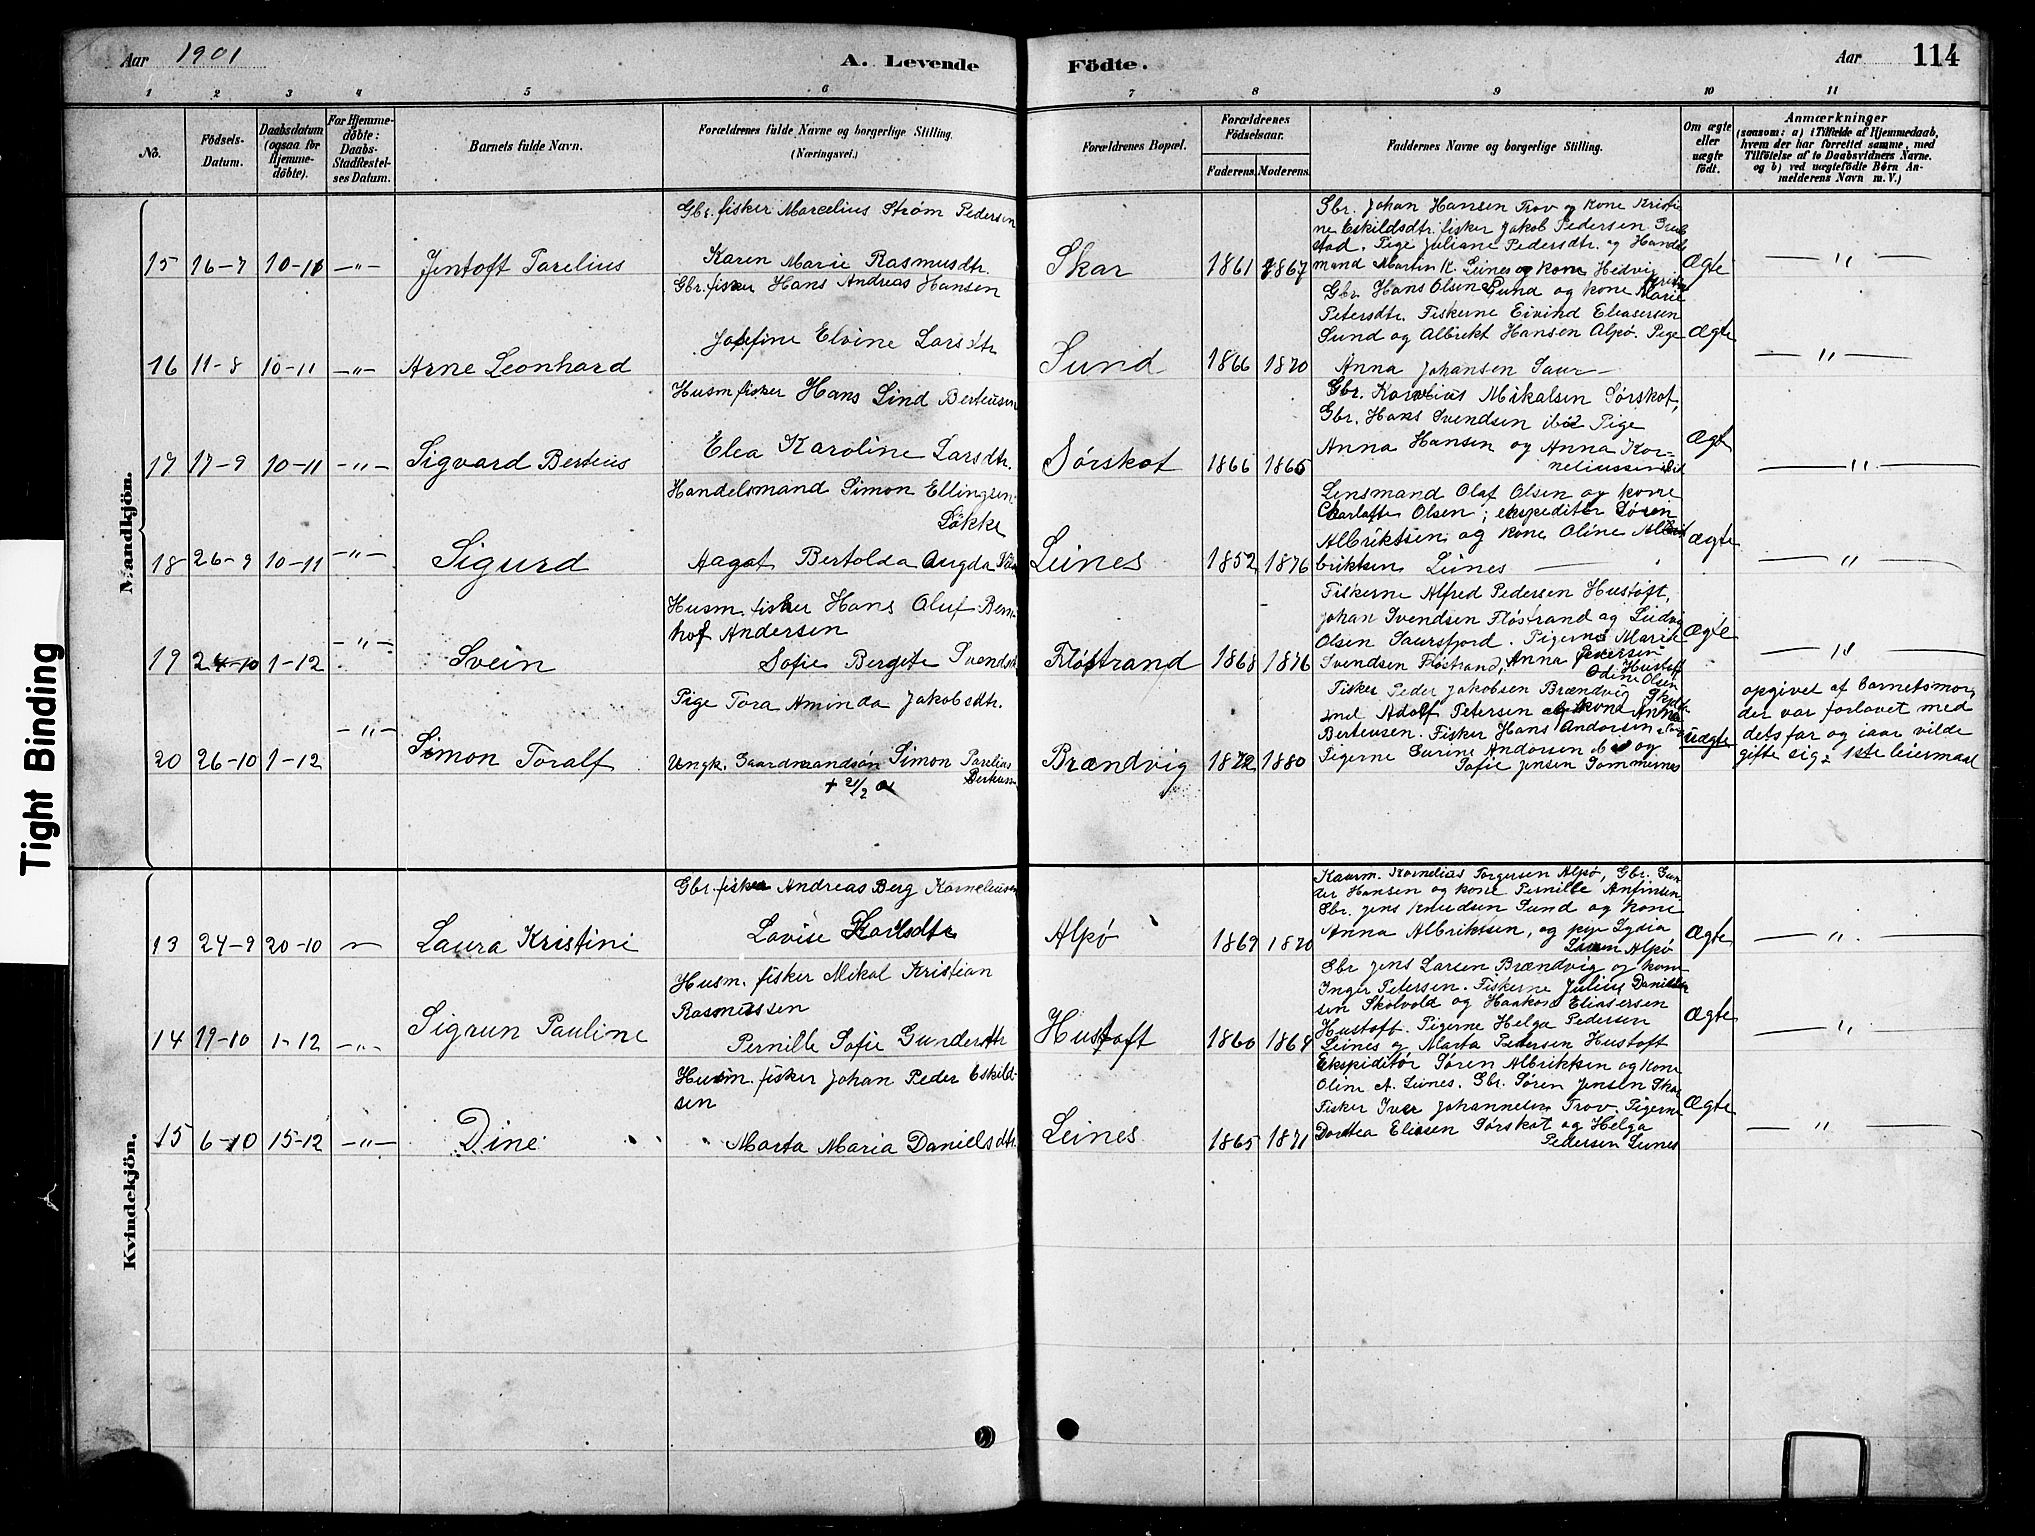 Aar 1901 A. Levende Födte. Aar 114
1 2 3 4 5 6 7 8 9 10 11
No. Födsels-Datum. Daabsdatum (ogsaa for Hjemmedöbte). For Hjemmedöbte: Daabs-Stadfæstelses Datum. Barnets fulde Navn. Forældrenes fulde Navne og borgerlige Stilling. (Næringsvei.) Forældrenes Bopæl. Forældrenes Födselsaar. Faderens. Moderens. Faddernes Navne og borgerlige Stilling. Om ægte eller uægte födt. Anmærkninger (saasom: a) i Tilfælde af Hjemmedaab, hvem der har forrettet samme, med Tilföielse af to Daabsvidners Navne. og b) ved uægtefödte Børn Anmelderens Navn m. V.)
Mandkjön.
Gbr. fisker Marcelius Strøm Pedersen
Karen Marie Rasmusdtr.
15 16-7 10-11 —"— Jentoft Parelius Skar 1861 1867
Gbr. Johan Hansen Trov og kone Kristi
ne Eskildsdtr. fisker Jakob Pedersen
stad. Pige Juliane Pedersdtr. og Handels
mand Martin K. Leines og kone Hedvig
Ægte —"—
Gbr. fisker Hans Andreas Hansen
Josefine Elvine Larsdtr
16 11-8 10-11 —"— Arne Leonhard Sund 1866 1870
Gbr. Hans Olsen Sund og kone Marie
Petersdtr. Fiskerne Eivind Eleasersen
Sund og Albrikt Hansen Alpø. Pige
Anna Johansen Saur—
Ægte —"—
Husm. fisker Hans Lind Berteusen
Elea Karoline Larsdtr.
17 17-9 10-11 —"— Sigvard Berteus Sørskot 1866 1865
Gbr. Kornelius Mikalsen Sørskot,
Gbr. Hans Svendsen ibid Pige
Anna Hansen og Anna Kor-
neliussen ibid
Ægt —"—
Handelsmand Simon Ellingsen
Løkke
Aagot Bertolda Augda
18 26-9 10-11 —"— Sigurd Leines 1852 1876
Lensmand Olaf Olsen og kone
Charlotte Olsen; ekspeditør Søren
Albriktsen og kone Oline Al
briktsen Leines —
Ægte —"—
Husm. fisker Hans Oluf Bern
hof Andersen
Sofie Bergite Svendsdtr
19 24-10 1-12 —"— Svein Fløstrand 1868 1876
Fiskerne Alfred Pedersen Hustoft,
Johan Svendsen Fløstrand og Ludvig
Olsen Saursfjord. Pigerne Marie
Svendsen Fløstrand, Anna Pedersen
Hustoft
Odine Olsen
Ægte —"—
Pige Tora Aminda Jakobsdtr.
Ungk. Gaardmandsøn Simon Parelius
Berteusen
+ 21/2 01
20 26-10 1-12 —"— Simon Toralf Brændvig 1872 1880
Fisker Peder Jakobsen Brændvig
Adolf Petersen og kone Anna
Berteusen. Fisker Hans Andersen
Pigerne Surine Andersen ibid og
Sofie Jensen Sommernes
uægte
opgivet af barnetsmor,
der var forlovet med
dets far og iaar vilde
gifte sig: 1ste leiermaal
Kvindekjön.
Gbr. fisker Andreas Berg Korneliussen
Lovise Karlsdtr
13 24-9 20-10 — Laura Kristine Alpø 1869 1870
Kaarm. Kornelius Torgersen Alpø, Gbr. Gun
der Hansen og kone Pernille Anfinsen
Gbr. Jens Knudsen Sund og kone
Anna Albriktsen, og pige Lydia
Larsen Alpø
Ægte —"—
Husm. fisker Mikal Kristian
Rasmussen
Pernille Sofie Gundersdtr
14 19-10 1-12 —"— Sigrun Pauline Hustoft 1860 1864
Gbr Jens Larsen Brændvig og kone
Inger Petersen. Fiskerne Julius Daniel
sen Skolvold og Haakon Eliasersen
Hustoft. Pigerne Helga Pedersen
Leines og Marta Petersen Hustoft
Ægte —"—
Husm. fisker Johan Peder Eskild-
sen
Marta Maria Danielsdtr.
15 6-10 15-12 —"— Dine Leines 1865 1871
Ekspiditør Søren Albriktsen og kone
Oline A. Leines. Gbr. Søren Jensen Skar
Fisker Iver Johannesen Trov. Pigerne
Dortea Eliasen Sørskot og Helga
Pedersen Leines
Ægte —"—
Tight Binding